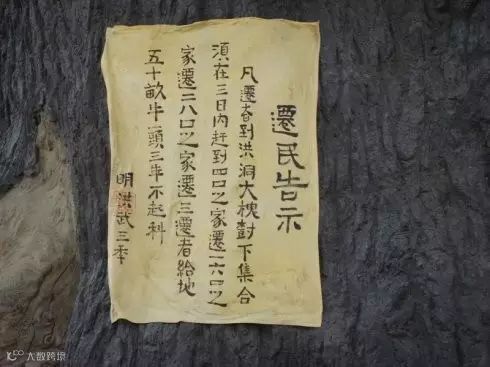 遷民告示
凡遷者到洪洞大槐樹下集合
須在三日内赶到四口之家遷一六口之
家遷二八口之家遷三遷者給地
五十畝牛一頭三年不起科
明洪武三年
大数跨境